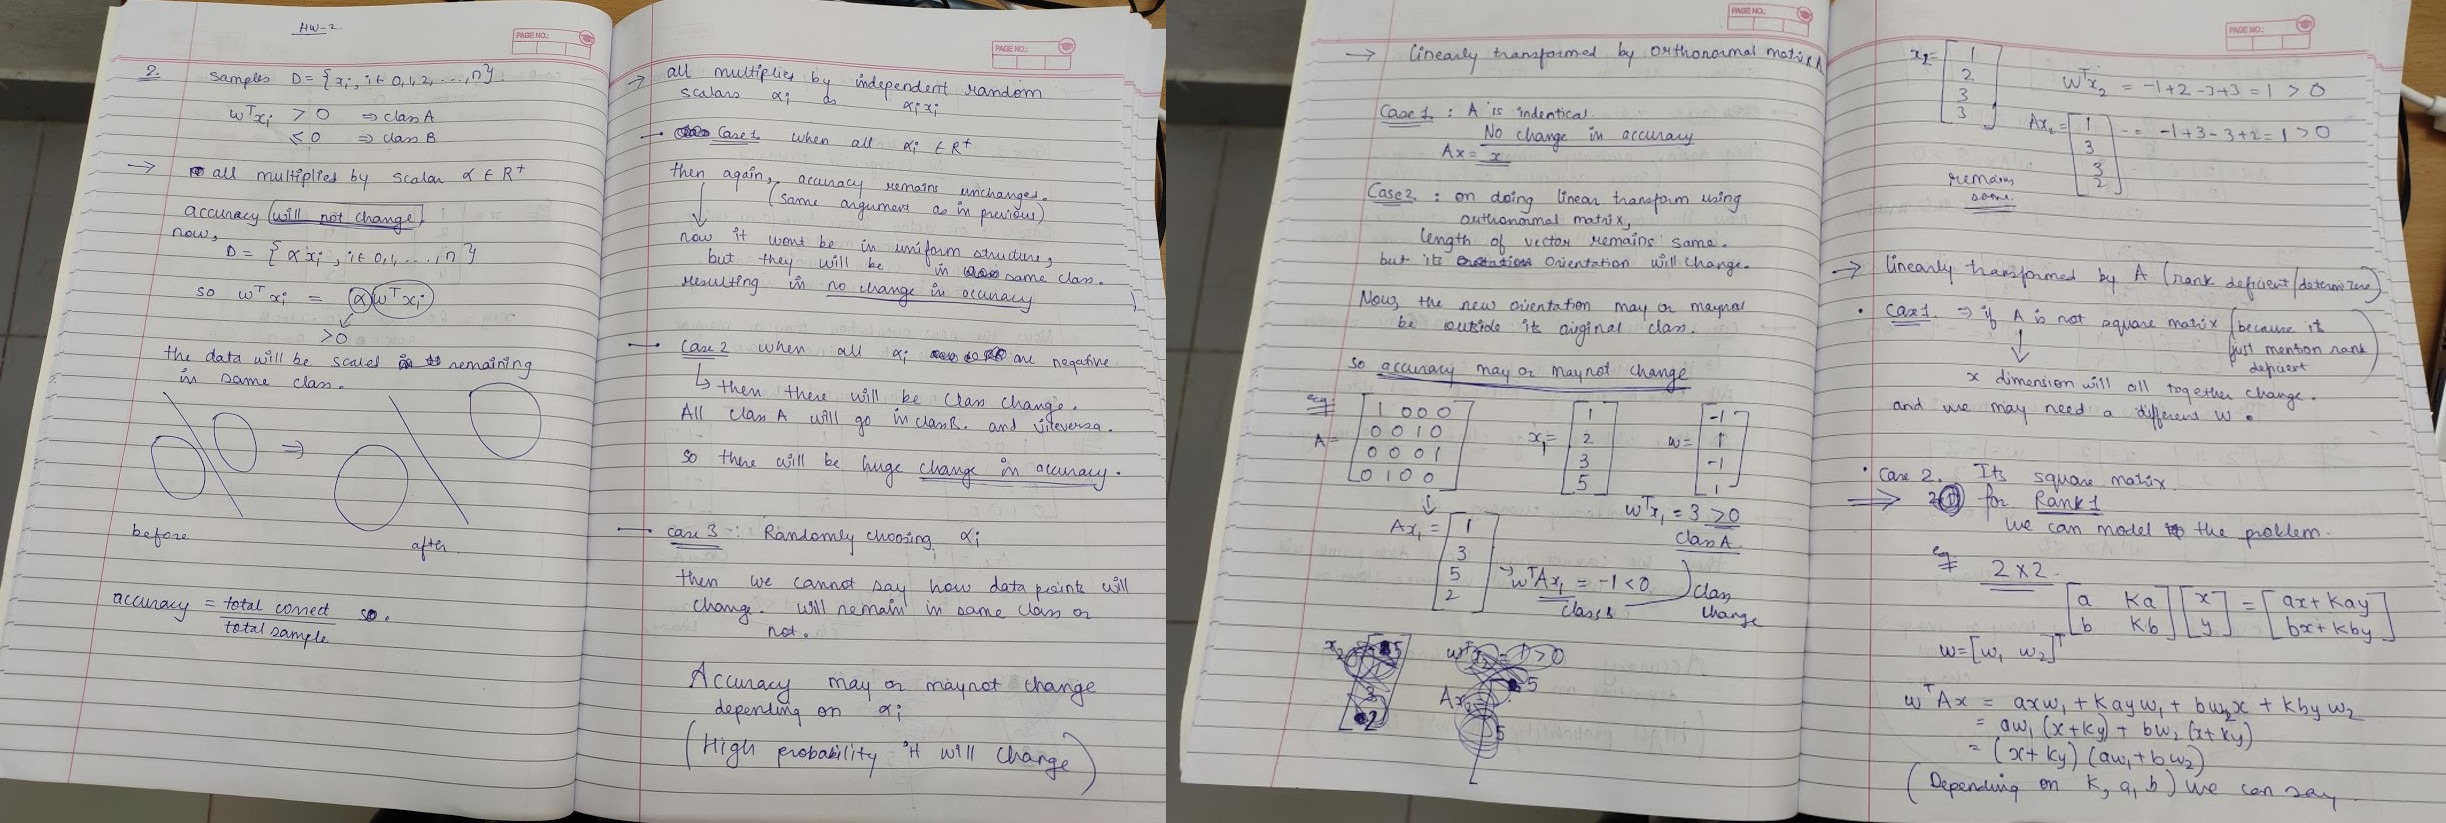 HW-2
PAGE NO.:
2. samples D = { xi, i ∈ 0,1,2, ...., n }.
wᵀxi > 0 ⇒ class A
≤ 0 ⇒ class B
→ all multiplied by scalar α ∈ R⁺
accuracy will not change
now,
D = { α xi , i ∈ 0,1, ....., n }
so wᵀxi = α wᵀxi
>0
the data will be scaled remaining
in same class.
⇒
before
after.
accuracy = total correct / total sample so.
PAGE NO.:
→ all multiplies by independent random
scalars αi as αi xi
— Case 1 when all αi ∈ R⁺
then again, accuracy remains unchanged.
(same argument as in previous)
now it wont be in uniform structure,
but they will be in same class.
resulting in no change in accuracy
— Case 2 when all αi are negative.
↳ then there will be class change.
All class A will go in class B. and viceversa.
so there will be huge change in accuracy.
— case 3 -: Randomly choosing αi
then we cannot say how data points will
change. will remain in same class or
not.
Accuracy may or maynot change
depending on αi
(High probability it will change)
PAGE NO.:
→ linearly transformed by orthonormal matrix A
Case 1 : A is indentical.
No change in accuracy
Ax = x
Case 2 : on doing linear transform using
orthonormal matrix,
length of vector remains same.
but its Orientation will change.
Now, the new orientation may or maynot
be outside its original class.
so accuracy may or maynot change
eg
A = [1 0 0 0 x1 = [1 w = [-1
0 0 1 0 2 1
0 0 0 1 3 -1
0 1 0 0] 5] 1]
wᵀx1 = 3 > 0
class A
Ax1 = [1
3
5
2]
→ wᵀAx1 = -1 < 0
class B
class
change
PAGE NO.:
x2 = [1
2
3
3]
wᵀx2 = -1+2-3+3 = 1 > 0
Ax2 = [1
3
3
2]
= -1+3-3+2 = 1 > 0
remains
same.
→ linearly transformed by A (rank deficient/determ zero)
• Case 1. ⇒ if A is not square matrix (because its
just mention rank
deficient)
x dimension will all together change.
and we may need a different w.
• Case 2. Its square matrix.
⇒ for Rank 1
we can model the problem.
eg 2x2
[a Ka [x = [ax + Kay
b Kb] y] bx + kby]
w = [w1 w2]ᵀ
wᵀAx = axw1 + Kayw1 + bw2x + kbyw2
= aw1 (x+ky) + bw2 (x+ky)
= (x+ky) (aw1 + bw2)
(Depending on K, a, b) we can say.